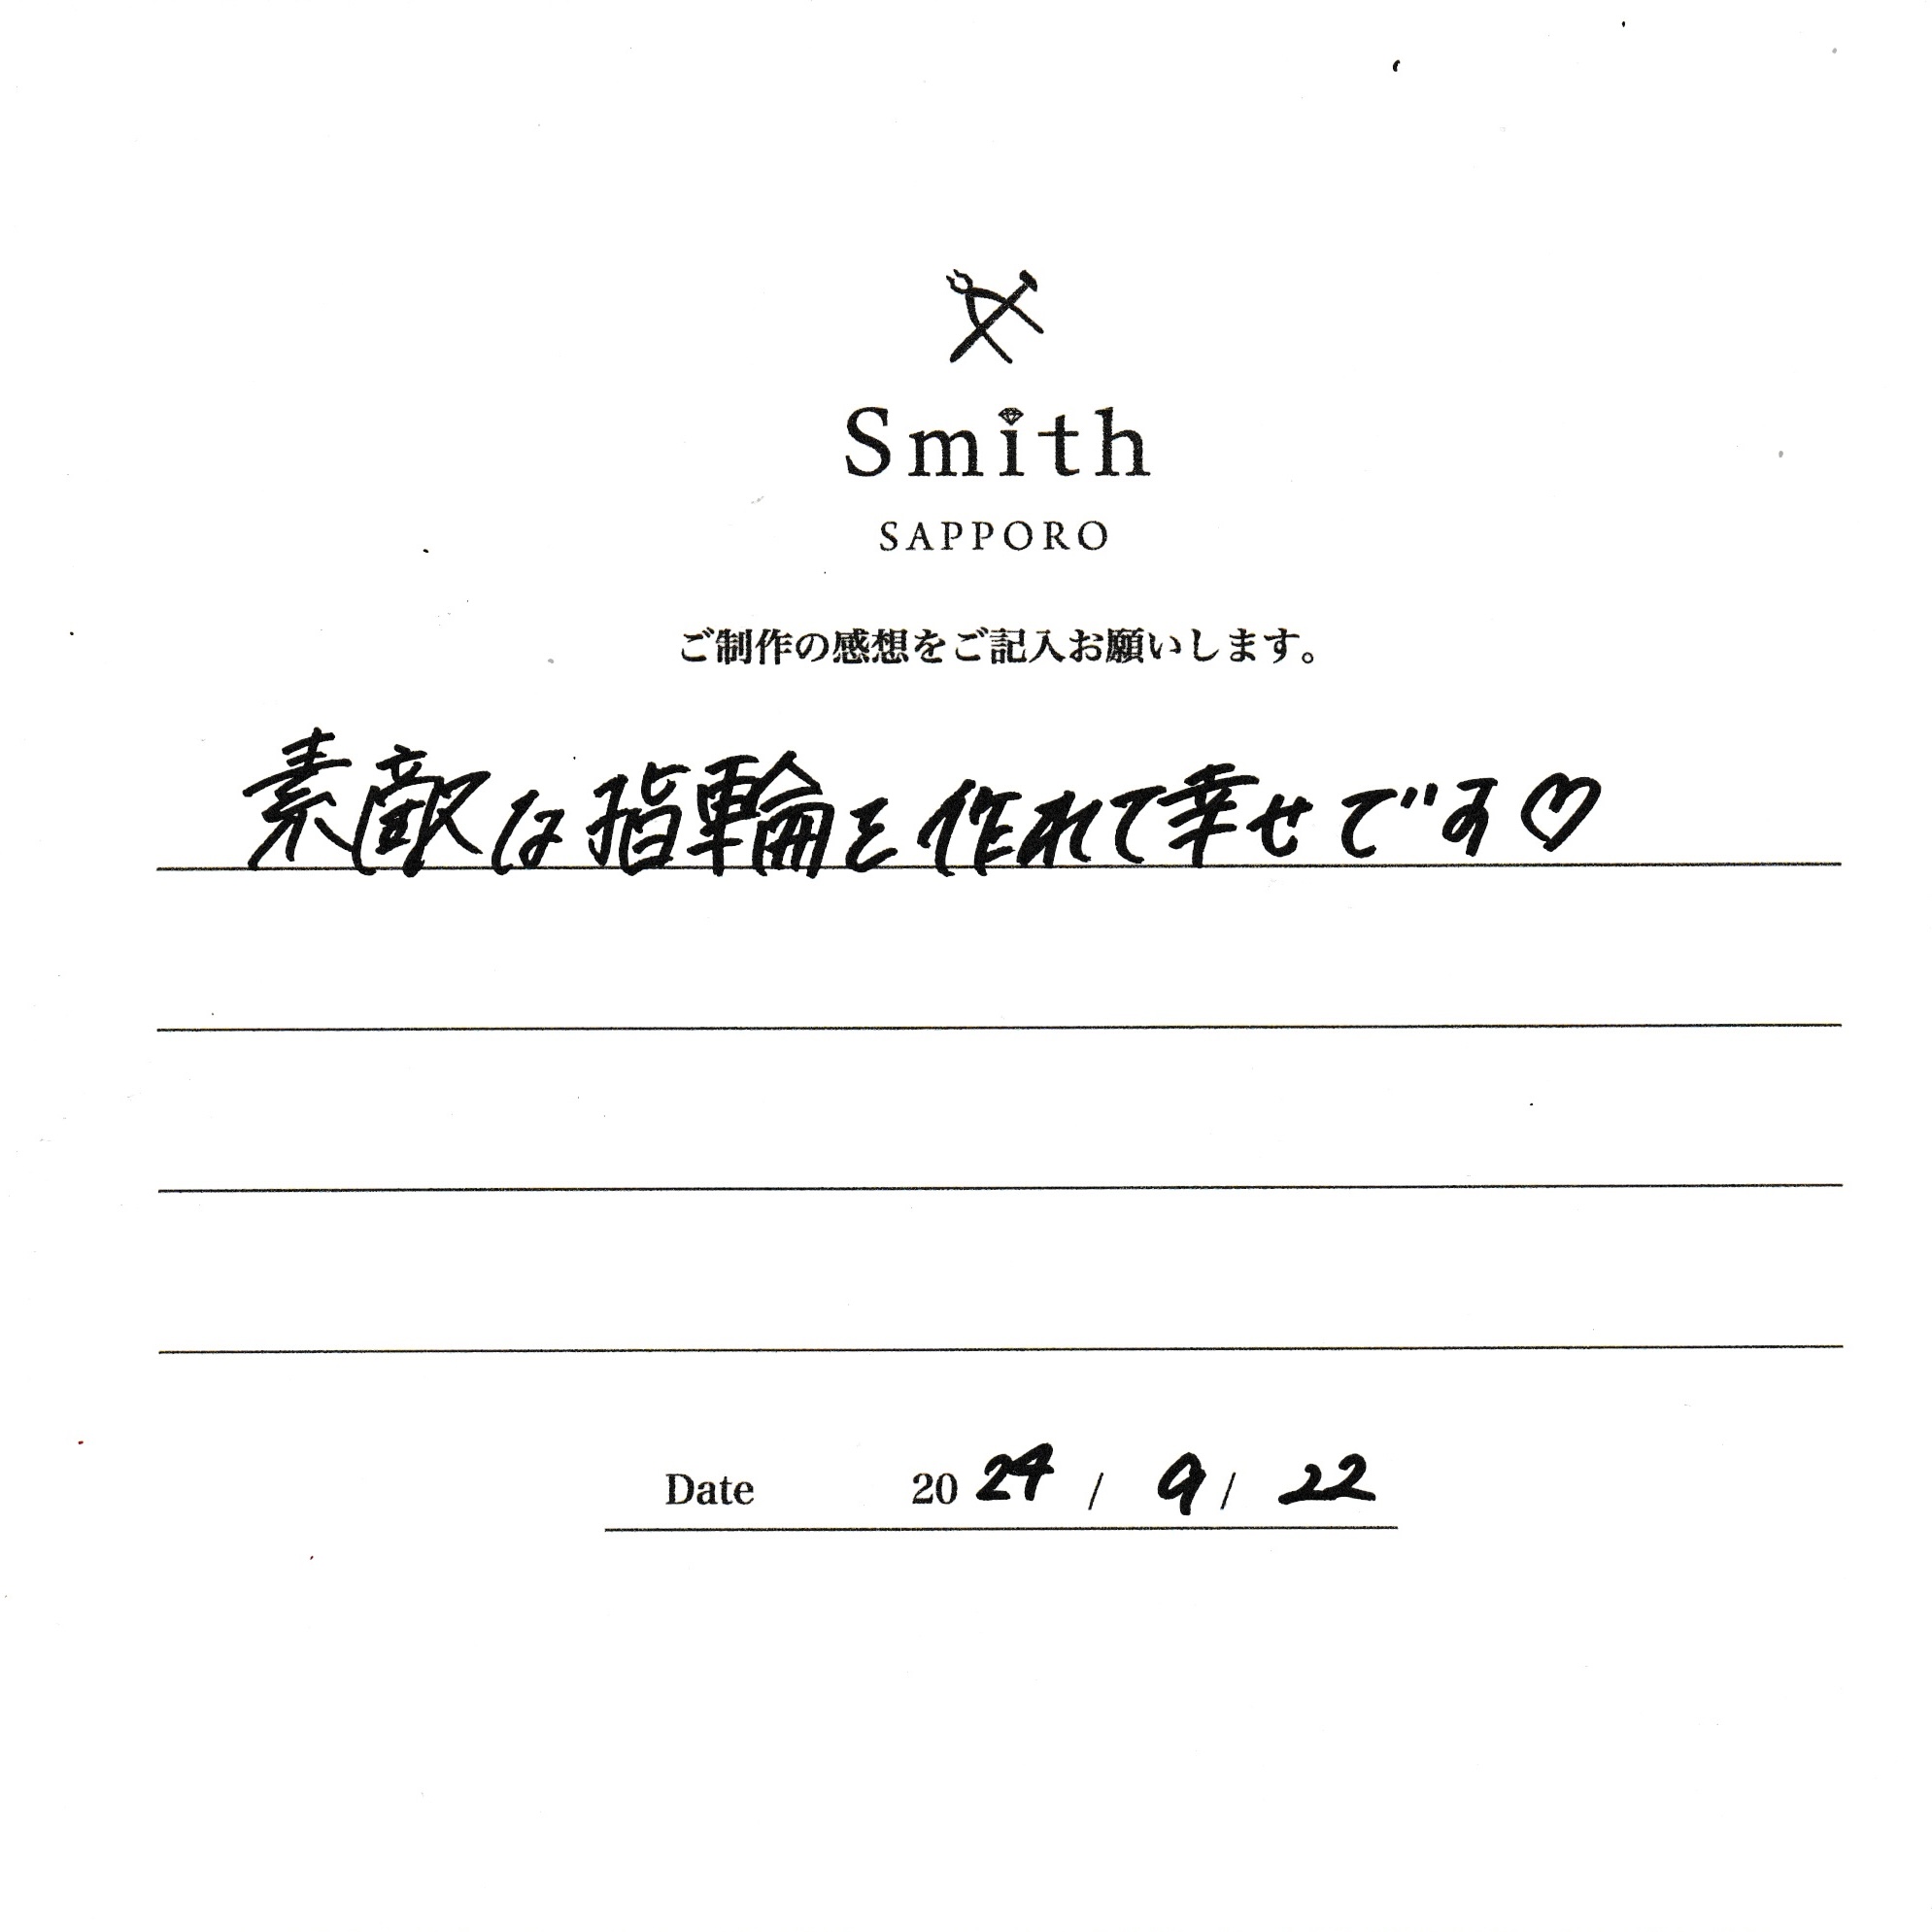 Smith
SAPPORO
ご制作の感想をご記入お願いします。
素敵な指輪を作れて幸せです♡
Date 2024 / 9 / 22